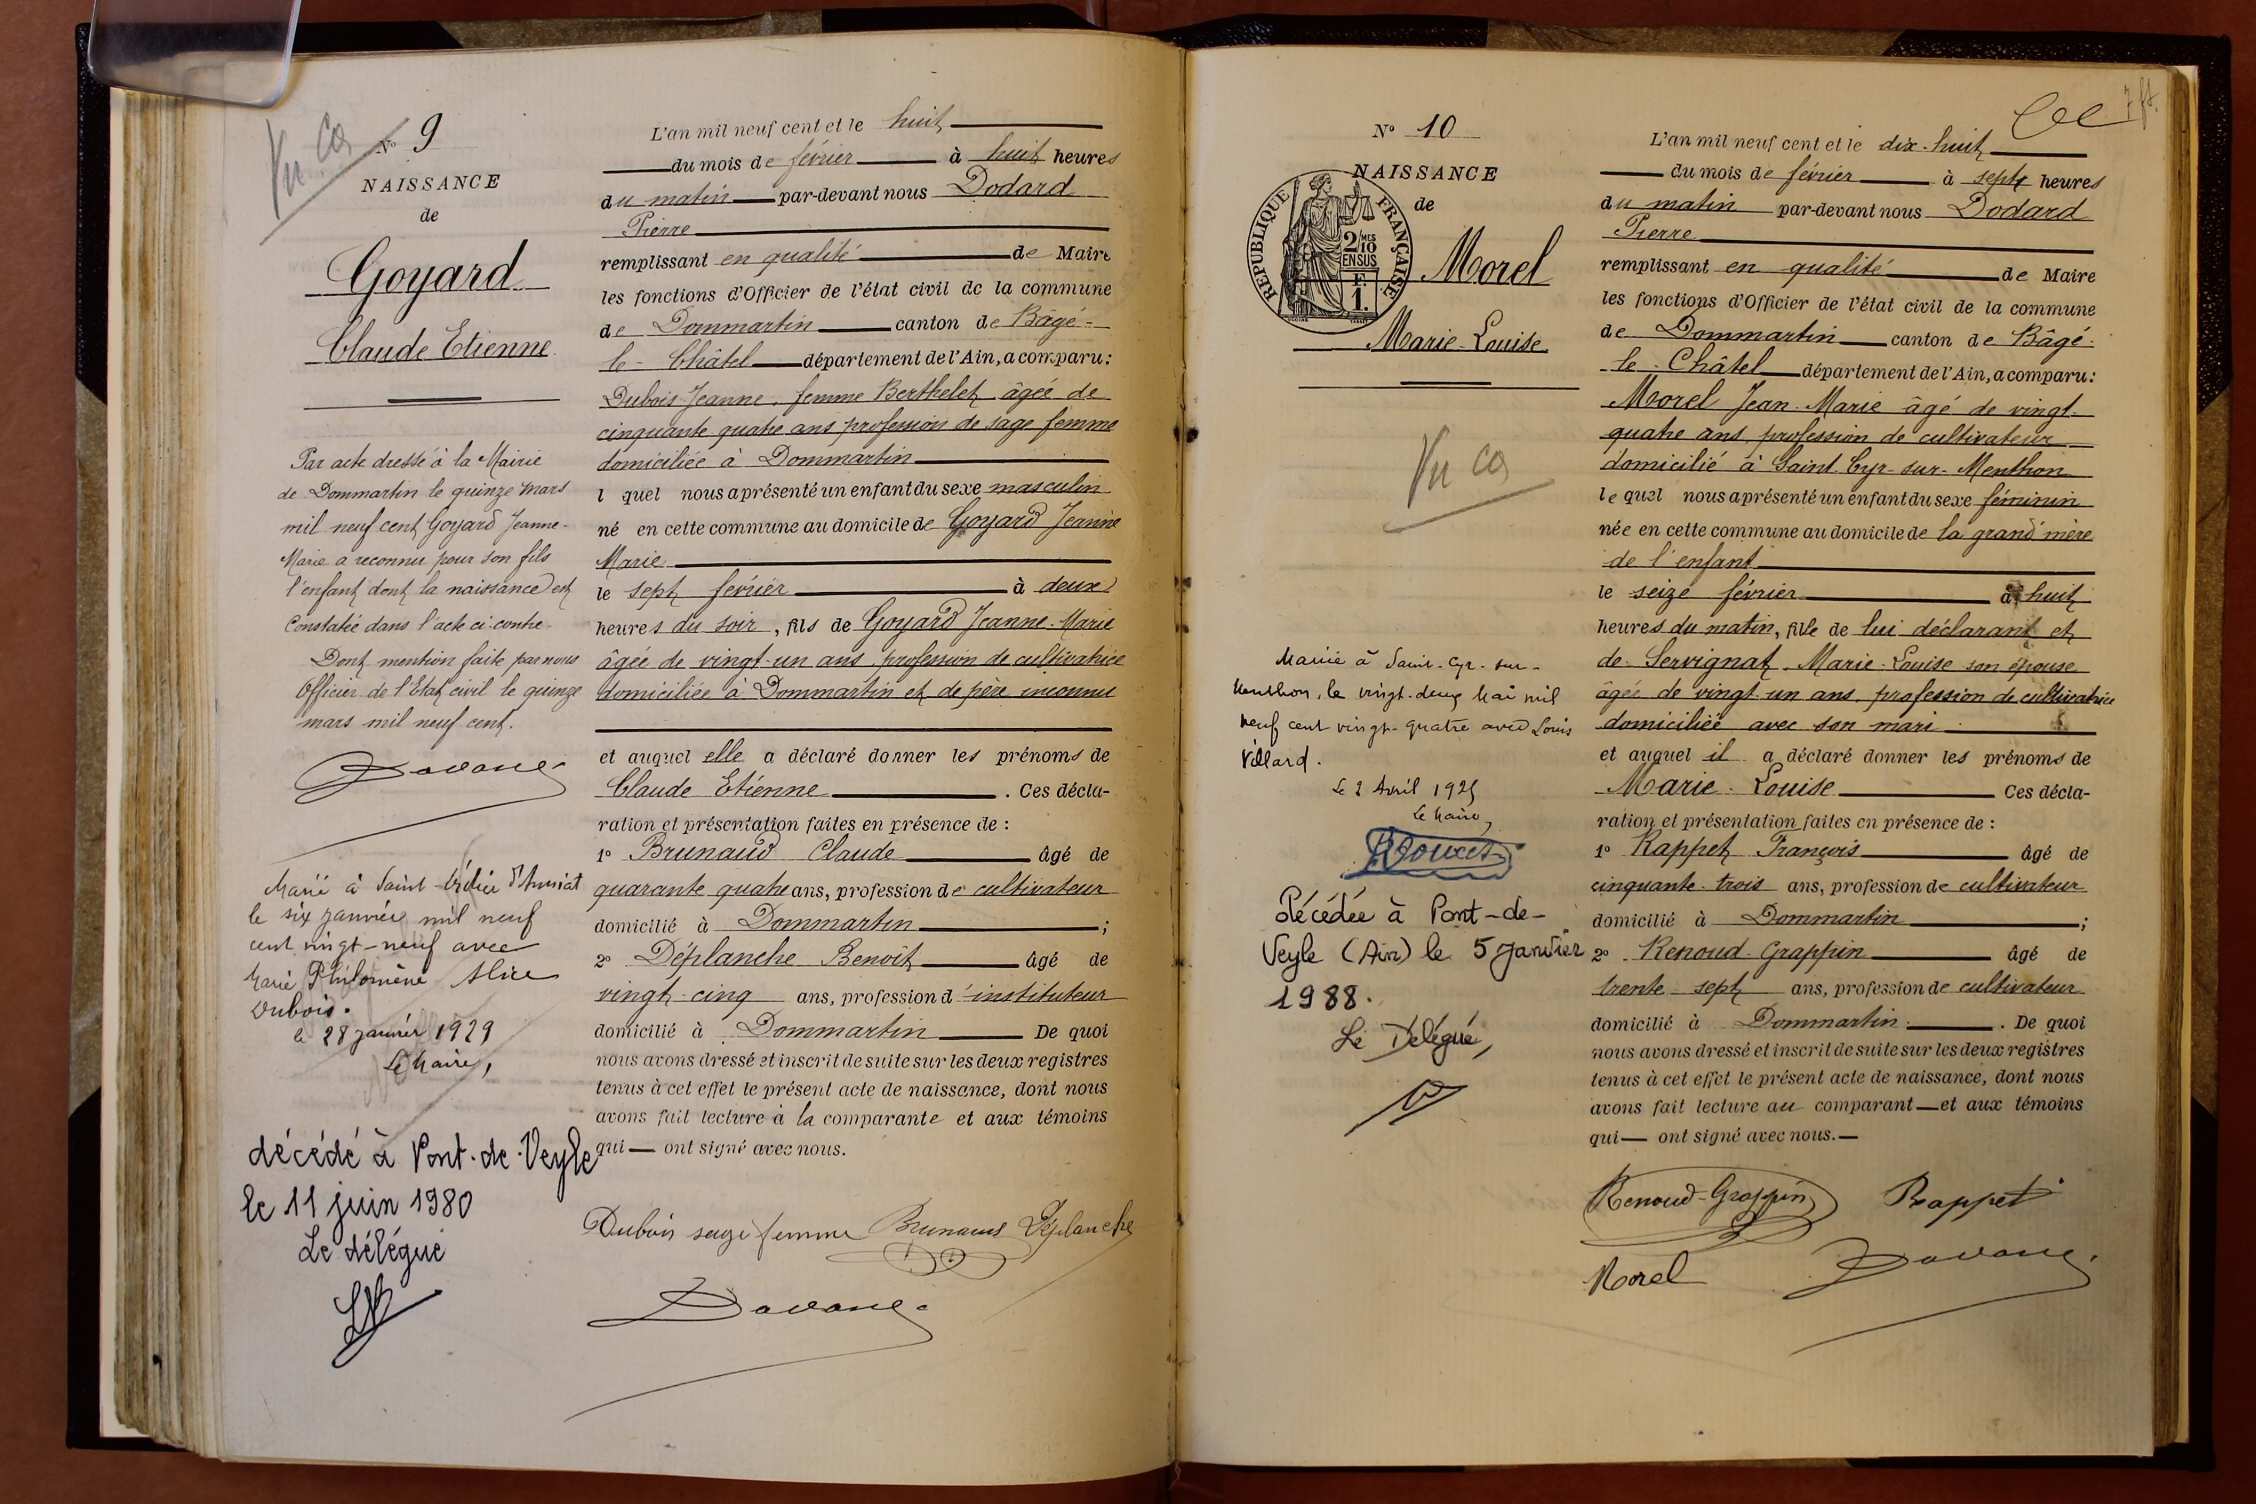 Vu CR
N° 9
NAISSANCE
de
Goyard
Claude Etienne
Par acte dressé à la Mairie
de Dommartin le quinze mars
mil neuf cent Goyard Jeanne-
Marie a reconnu pour son fils
l'enfant dont la naissance est
Constatée dans l'acte ci-contre.
Dont mention faite par nous
Officier de l'Etat civil le quinze
mars mil neuf cent.
Marié à Saint-Didier d'Aussiat
le six janvier mil neuf
cent vingt-neuf avec
Marie Philomène Alice
Dubois.
le 28 janvier 1929
Le Maire,
décédé à Pont-de-Veyle
le 11 juin 1980
Le délégué
L'an mil neuf cent et le huit
du mois de février à huit heures
du matin par-devant nous Dodard
Pierre
remplissant en qualité de Maire
les fonctions d'Officier de l'état civil de la commune
de Dommartin canton de Bâgé-
le-Châtel département de l'Ain, a comparu:
Dubois Jeanne, femme Berthelet âgée de
cinquante quatre ans profession de sage femme
domiciliée à Dommartin
l quel nous a présenté un enfant du sexe masculin
né en cette commune au domicile de Goyard Jeanne
Marie
le sept février à deux
heures du soir, fils de Goyard Jeanne-Marie
âgée de vingt-un ans profession de cultivatrice
domiciliée à Dommartin et de père inconnu
et auquel elle a déclaré donner les prénoms de
Claude Etienne . Ces décla-
ration et présentation faites en présence de :
1° Brunaud Claude âgé de
quarante quatre ans, profession de cultivateur
domicilié à Dommartin ;
2° Déplanche Benoît âgé de
vingt-cinq ans, profession d'instituteur
domicilié à Dommartin De quoi
nous avons dressé et inscrit de suite sur les deux registres
tenus à cet effet le présent acte de naissance, dont nous
avons fait lecture à la comparante et aux témoins
qui ont signé avec nous.
Dubois sage femme Brunaud Déplanche
7 ft.
N° 10
NAISSANCE
de
RÉPUBLIQUE FRANÇAISE
2/10 MES
EN SUS
F.
1.
Morel
Marie-Louise
Vu CR
Mariée à Saint-Cyr-sur-
Menthon, le vingt-deux Mai mil
neuf cent vingt-quatre avec Louis
Villard.
Le 2 Avril 1925
Le Maire,
Décédée à Pont-de-
Veyle (Ain) le 5 janvier
1988.
Le Délégué,
L'an mil neuf cent et le dix-huit
du mois de février à sept heures
du matin par-devant nous Dodard
Pierre
remplissant en qualité de Maire
les fonctions d'Officier de l'état civil de la commune
de Dommartin canton de Bâgé-
le-Châtel département de l'Ain, a comparu:
Morel Jean-Marie âgé de vingt-
quatre ans, profession de cultivateur
domicilié à Saint-Cyr-sur-Menthon
le quel nous a présenté un enfant du sexe féminin
née en cette commune au domicile de la grand'mère
de l'enfant
le seize février à huit
heures du matin, fille de lui déclarant et
de Servignat Marie-Louise son épouse
âgée de vingt-un ans, profession de cultivatrice
domiciliée avec son mari
et auquel il a déclaré donner les prénoms de
Marie-Louise Ces décla-
ration et présentation faites en présence de :
1° Rappet François âgé de
cinquante-trois ans, profession de cultivateur
domicilié à Dommartin ;
2° Renoud-Grappin âgé de
trente-sept ans, profession de cultivateur
domicilié à Dommartin . De quoi
nous avons dressé et inscrit de suite sur les deux registres
tenus à cet effet le présent acte de naissance, dont nous
avons fait lecture au comparant et aux témoins
qui ont signé avec nous.
Renoud-Grappin Rappet
Morel